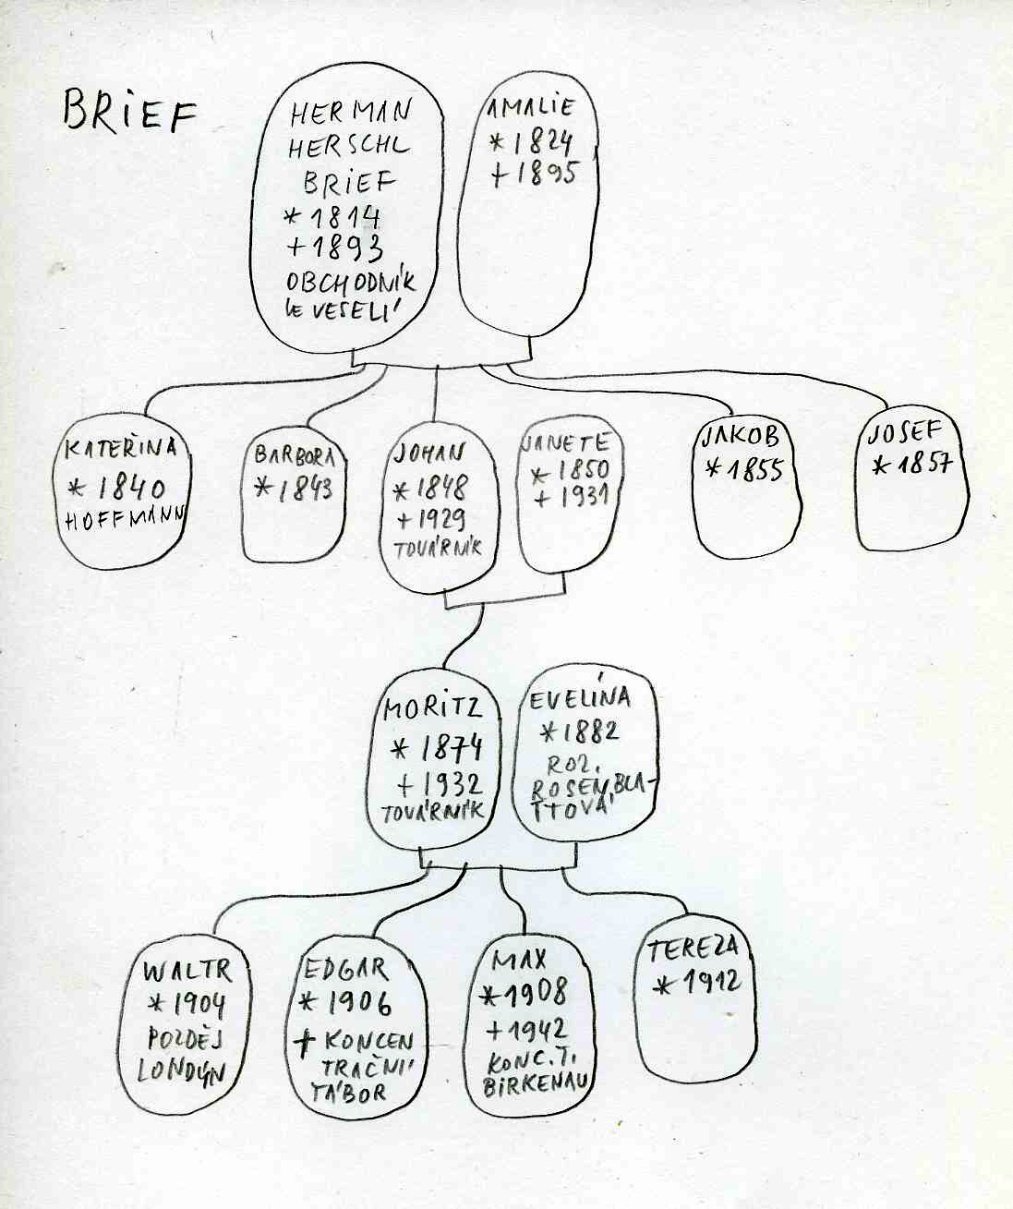 BRiEF
HERMAN
HERSCHL
BRiEF
* 1814
+ 1893
OBCHODNÍK
VE VESELÍ
AMALiE
* 1824
+ 1895
KATEŘINA
* 1840
HOFFMANN
BARBORA
* 1843
JOHAN
* 1848
+ 1929
TOVÁRNÍK
JANETE
* 1850
+ 1931
JAKOB
* 1855
JOSEF
* 1857
MORiTZ
* 1874
+ 1932
TOVÁRNÍK
EVELÍNA
* 1882
ROZ.
ROSENBLA-
TTOVÁ
WALTR
* 1904
POZDĚJ
LONDÝN
EDGAR
* 1906
+ KONCEN
TRAČNÍ
TÁBOR
MAX
* 1908
+ 1942
KONC. T.
BiRKENAU
TEREZA
* 1912